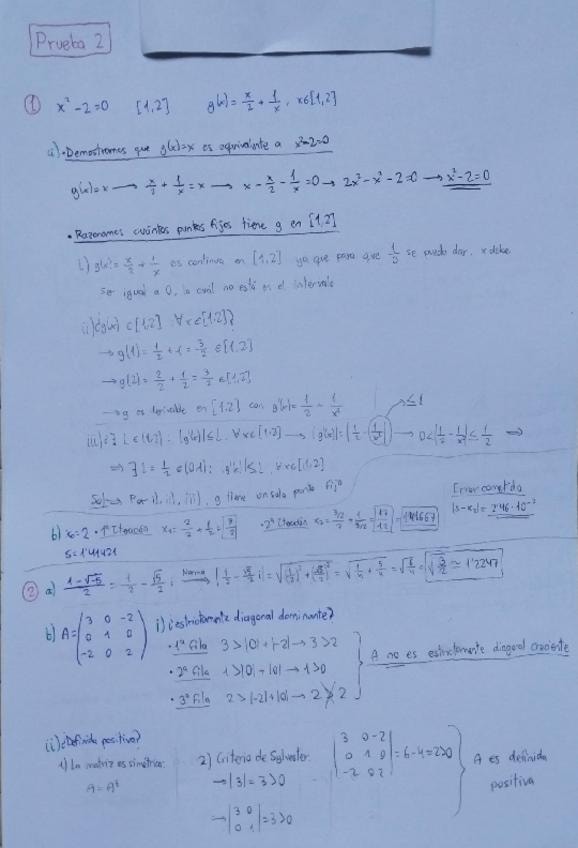 Prueba 2
① x² - 2 = 0 [1,2] g(x) = x/2 + 1/x, x∈[1,2]
a) • Demostramos que g(x)=x es equivalente a x²-2=0
g(x)=x → x/2 + 1/x = x → x - x/2 - 1/x = 0 → 2x² - x² - 2 = 0 → x² - 2 = 0
• Razonamos cuántos puntos fijos tiene g en [1,2]
i) g(x) = x/2 + 1/x es continua en [1,2] ya que para que 1/0 se pueda dar, x debe
ser igual a 0, lo cual no está en el intervalo
ii) ¿g(x) ∈ [1,2] ∀x∈[1,2]?
→ g(1) = 1/2 + 1 = 3/2 ∈ [1,2]
→ g(2) = 2/2 + 1/2 = 3/2 ∈ [1,2]
→ g es derivable en [1,2] con g'(x) = 1/2 - 1/x²
≤ 1
iii) ¿∃ L ∈ (1,2) : |g'(x)| ≤ L, ∀x∈[1,2] → |g'(x)| = |1/2 - 1/x²| → 0 < |1/2 - 1/x²| ≤ 1/2 ⇒
⇒ ∃ L = 1/2 ∈ (0,1) : |g'(x)| ≤ L, ∀x∈[1,2]
Sol → Por i), ii), iii), g tiene un solo punto fijo
b) x₀ = 2 • 1ª Iteración x₁ = 2/2 + 1/2 = 3/2 • 2ª Iteración x₂ = 3/2/2 + 1/3/2 = 17/12 = 1'41667
Error cometido
|s - x₂| = 2'46·10⁻³
s = 1'41421
② a) 1-√-5/2 = 1/2 - √5/2 i → Norma |1/2 - √5/2 i| = √(1/2)² + (√5/2)² = √1/4 + 5/4 = √6/4 = √3/2 ≃ 1'2247
b) A = (3 0 -2
0 1 0
-2 0 2)
i) ¿estrictamente diagonal dominante?
• 1ª fila 3 > |0| + |-2| → 3 > 2
• 2ª fila 1 > |0| + |0| → 1 > 0
• 3ª fila 2 > |-2| + |0| → 2 ≯ 2
A no es estrictamente diagonal creciente
ii) ¿Definida positiva?
1) La matriz es simétrica:
A = Aᵗ
2) Criterio de Sylvester:
→ |3| = 3 > 0
→ |3 0
0 1| = 3 > 0
|3 0 -2
0 1 0
-2 0 2| = 6 - 4 = 2 > 0
A es definida
positiva